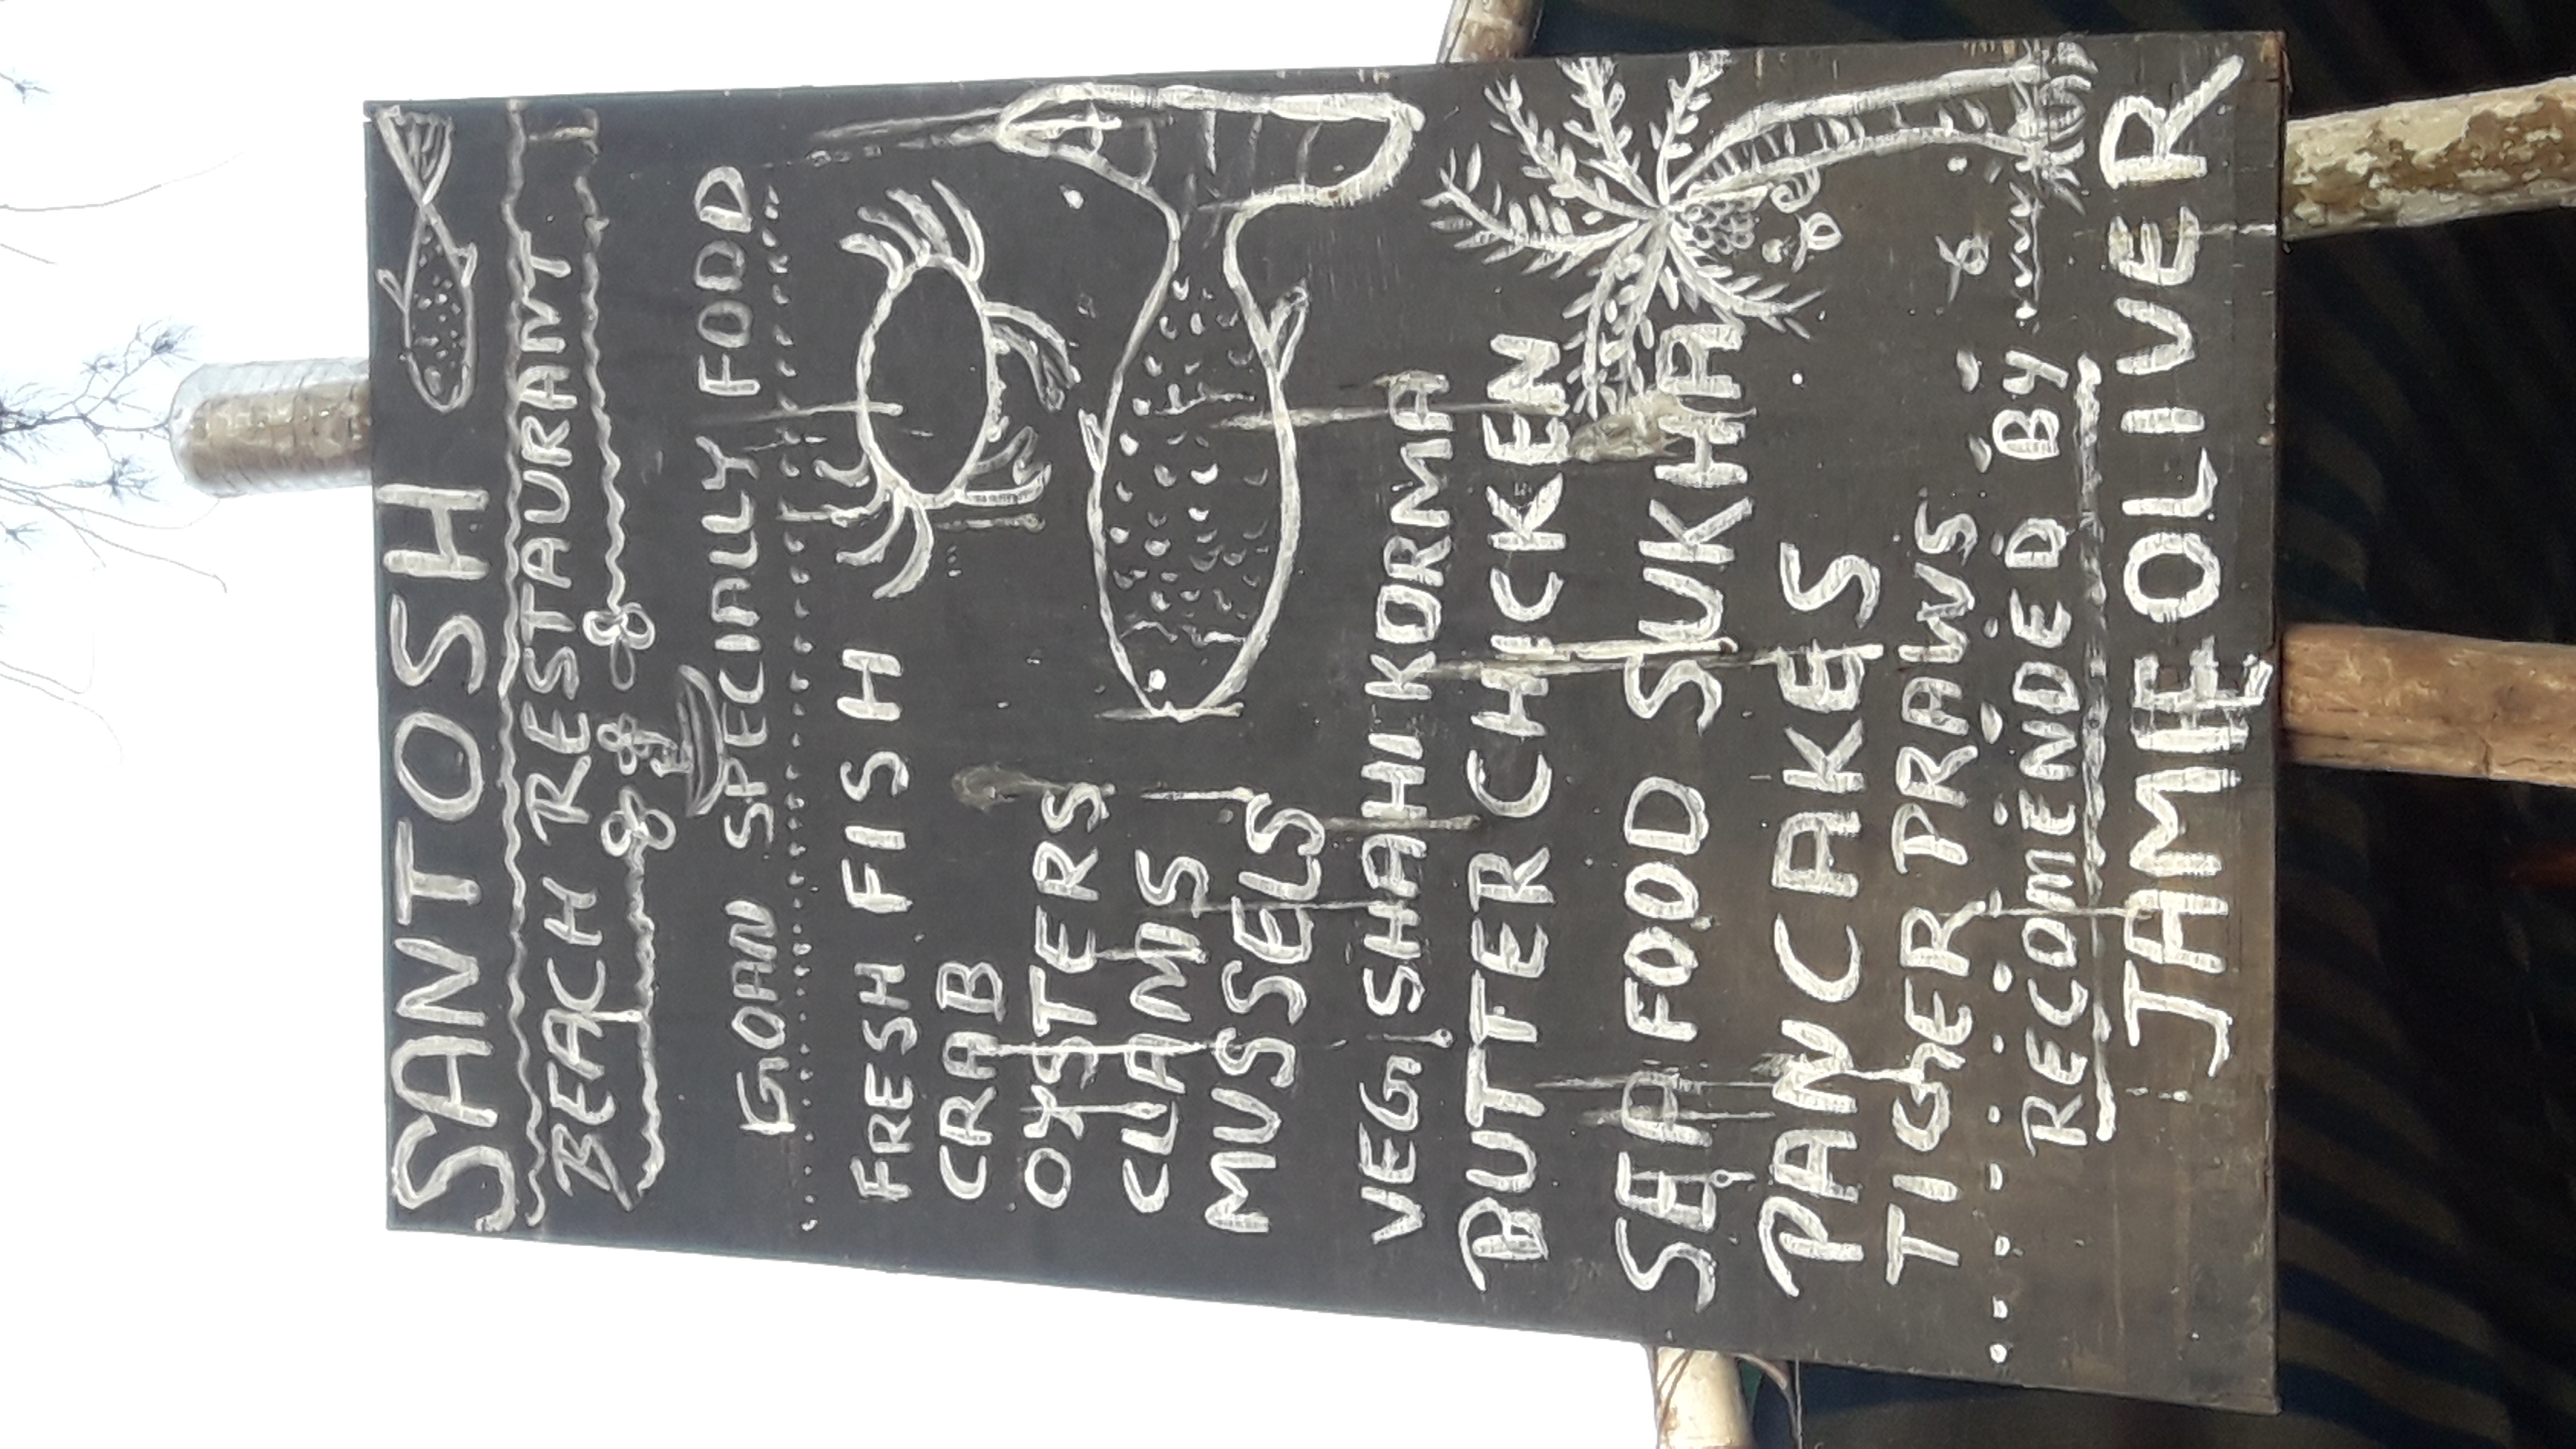 SANTOSH
BEACH RESTAURANT
GOAN SPECIALLY FOOD
FRESH FISH
CRAB
OYSTERS
CLAMS
MUSSELS
VEG! SHAHI KORMA
BUTTER CHICKEN
SEA FOOD SUKHA
PAN CAKES
TIGER PRAWS
RECOMENDED BY
JAMIE OLIVER